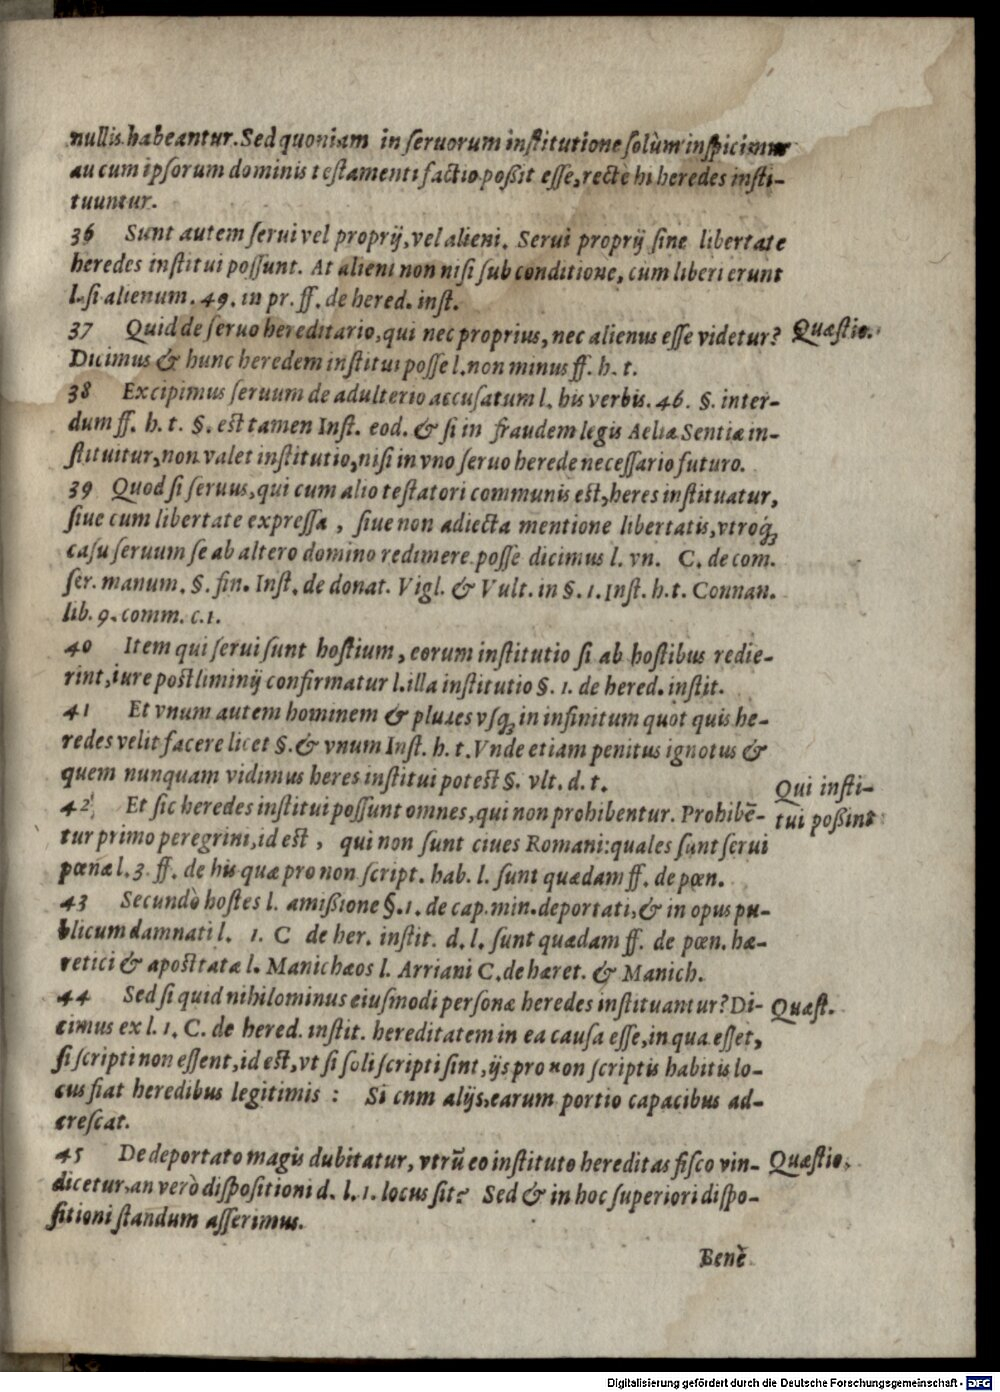 nullis habeantur. Sed quoniam in seruorum institutione solùm inspicimus
an cum ipsorum dominis testamenti factio poßit esse, recte hi heredes insti-
tuuntur.
36 Sunt autem serui vel proprij, vel alieni. Serui proprij sine libertate
heredes institui possunt. At alieni non nisi sub conditione, cum liberi erunt
l. si alienum. 49. in pr. ff. de hered. inst.
37 Quid de seruo hereditario, qui nec proprius, nec alienus esse videtur? Quæstio.
Dicimus & hunc heredem institui posse l. non minus ff. h. t.
38 Excipimus seruum de adulterio accusatum l. his verbis. 46. §. inter-
dum ff. h. t. §. est tamen Inst. eod. & si in fraudem legis Aelia Sentiæ in-
stituitur, non valet institutio, nisi in vno seruo herede necessario futuro.
39 Quod si seruus, qui cum alio testatori communis est, heres instituatur,
siue cum libertate expressa, siue non adiecta mentione libertatis, vtroq́;
casu seruum se ab altero domino redimere posse dicimus l. vn. C. de com.
ser. manum. §. fin. Inst. de donat. Vigl. & Vult. in §. 1. Inst. h. t. Connan.
lib. 9. comm. c. 1.
40 Item qui serui sunt hostium, eorum institutio si ab hostibus redie-
rint, iure postliminij confirmatur l. illa institutio §. 1. de hered. instit.
41 Et vnum autem hominem & plures vsq; in infinitum quot quis he-
redes velit facere licet §. & vnum Inst. h. t. Vnde etiam penitus ignotus &
quem nunquam vidimus heres institui potest §. vlt. d. t.
Qui insti-
tui poßint
42 Et sic heredes institui possunt omnes, qui non prohibentur. Prohibē-
tur primo peregrini, id est, qui non sunt ciues Romani: quales sunt serui
pœnæ l. 3. ff. de his quæ pro non script. hab. l. sunt quædam ff. de pœn.
43 Secundò hostes l. amißione §. 1. de cap. min. deportati, & in opus pu-
blicum damnati l. 1. C de her. instit. d. l. sunt quædam ff. de pœn. hæ-
retici & apostatæ l. Manichæos l. Arriani C. de hæret. & Manich.
44 Sed si quid nihilominus eiusmodi personæ heredes instituantur? Di- Quæst.
cimus ex l. 1. C. de hered. instit. hereditatem in ea causa esse, in qua esset,
si scripti non essent, id est, vt si soli scripti sint, ijs pro non scriptis habitis lo-
cus fiat heredibus legitimis: Si cnm alijs, earum portio capacibus ad-
crescat.
45 De deportato magis dubitatur, vtrū eo instituto hereditas fisco vin- Quæstio.
dicetur, an verò dispositioni d. l. 1. locus sit? Sed & in hoc superiori dispo-
sitioni standum asserimus.
Benè
Digitalisierung gefördert durch die Deutsche Forschungsgemeinschaft - DFG